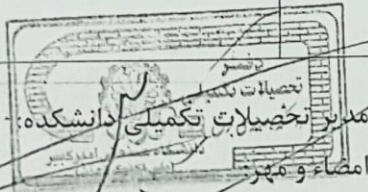 دفتر
تحصیلات تکمیلی
مدیر تحصیلات تکمیلی دانشکده:
امضاء و مهر: